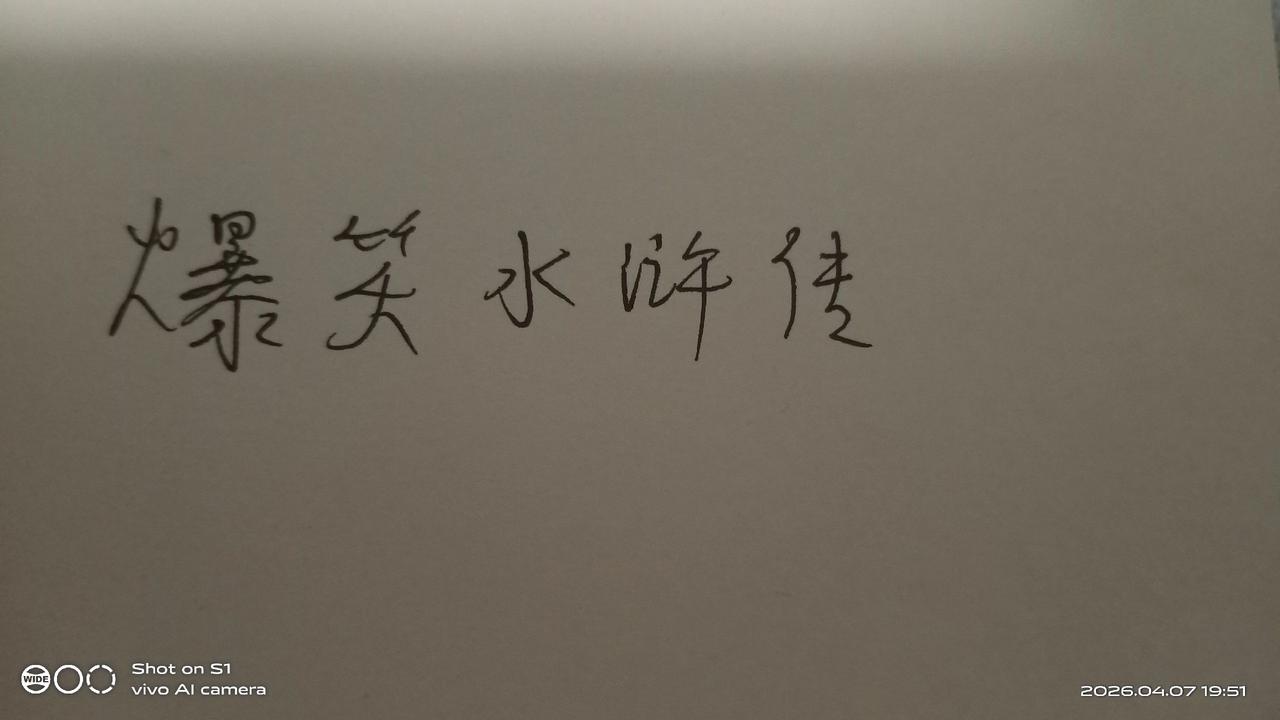 爆笑水浒传
WIDE
Shot on S1
vivo AI camera
2026.04.07 19:51